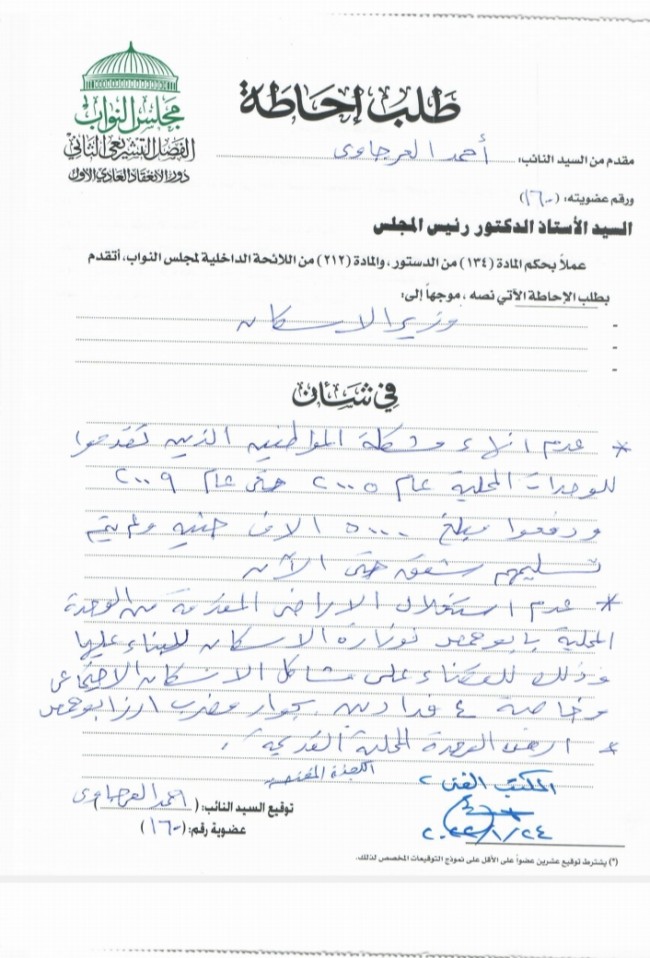 مجلس النواب
الفصل التشريعي الثاني
دور الانعقاد العادي الاول
طلب إحاطة
مقدم من السيد النائب: أحمد العرجاوى
ورقم عضويته: (١٦٠)
السيد الأستاذ الدكتور رئيس المجلس
عملاً بحكم المادة (١٣٤) من الدستور، والمادة (٢١٢) من اللائحة الداخلية لمجلس النواب، أتقدم
بطلب الإحاطة الآتي نصه، موجهاً إلى:
- وزير الاسكان
-
-
في شأن
* عدم انهاء مشكلة المواطنين الذين تقدموا
للوحدات المحلية عام ٢٠٠٥ حتى عام ٢٠٠٩
ودفعوا مبلغ ٥٠٠٠ الاف جنيه ولم يتم
تسليمهم شقق حتى الآن
* عدم استغلال الاراضى المقدمة من الوحدة
المحلية بابوحمص لوزارة الاسكان للبناء عليها
وذلك للقضاء على مشاكل الاسكان الاجتماعى
وخاصة ٤ فدادين بجوار مضرب ارز ابوحمص
* ارض الوحدة المحلية القديمة.
المكتب الفنى
٢٠٢٢/١/٢٤
توقيع السيد النائب: (احمد العرجاوى)
عضوية رقم: (١٦٠)
(*) يشترط توقيع عشرين عضواً على الأقل على نموذج التوقيعات المخصص لذلك.